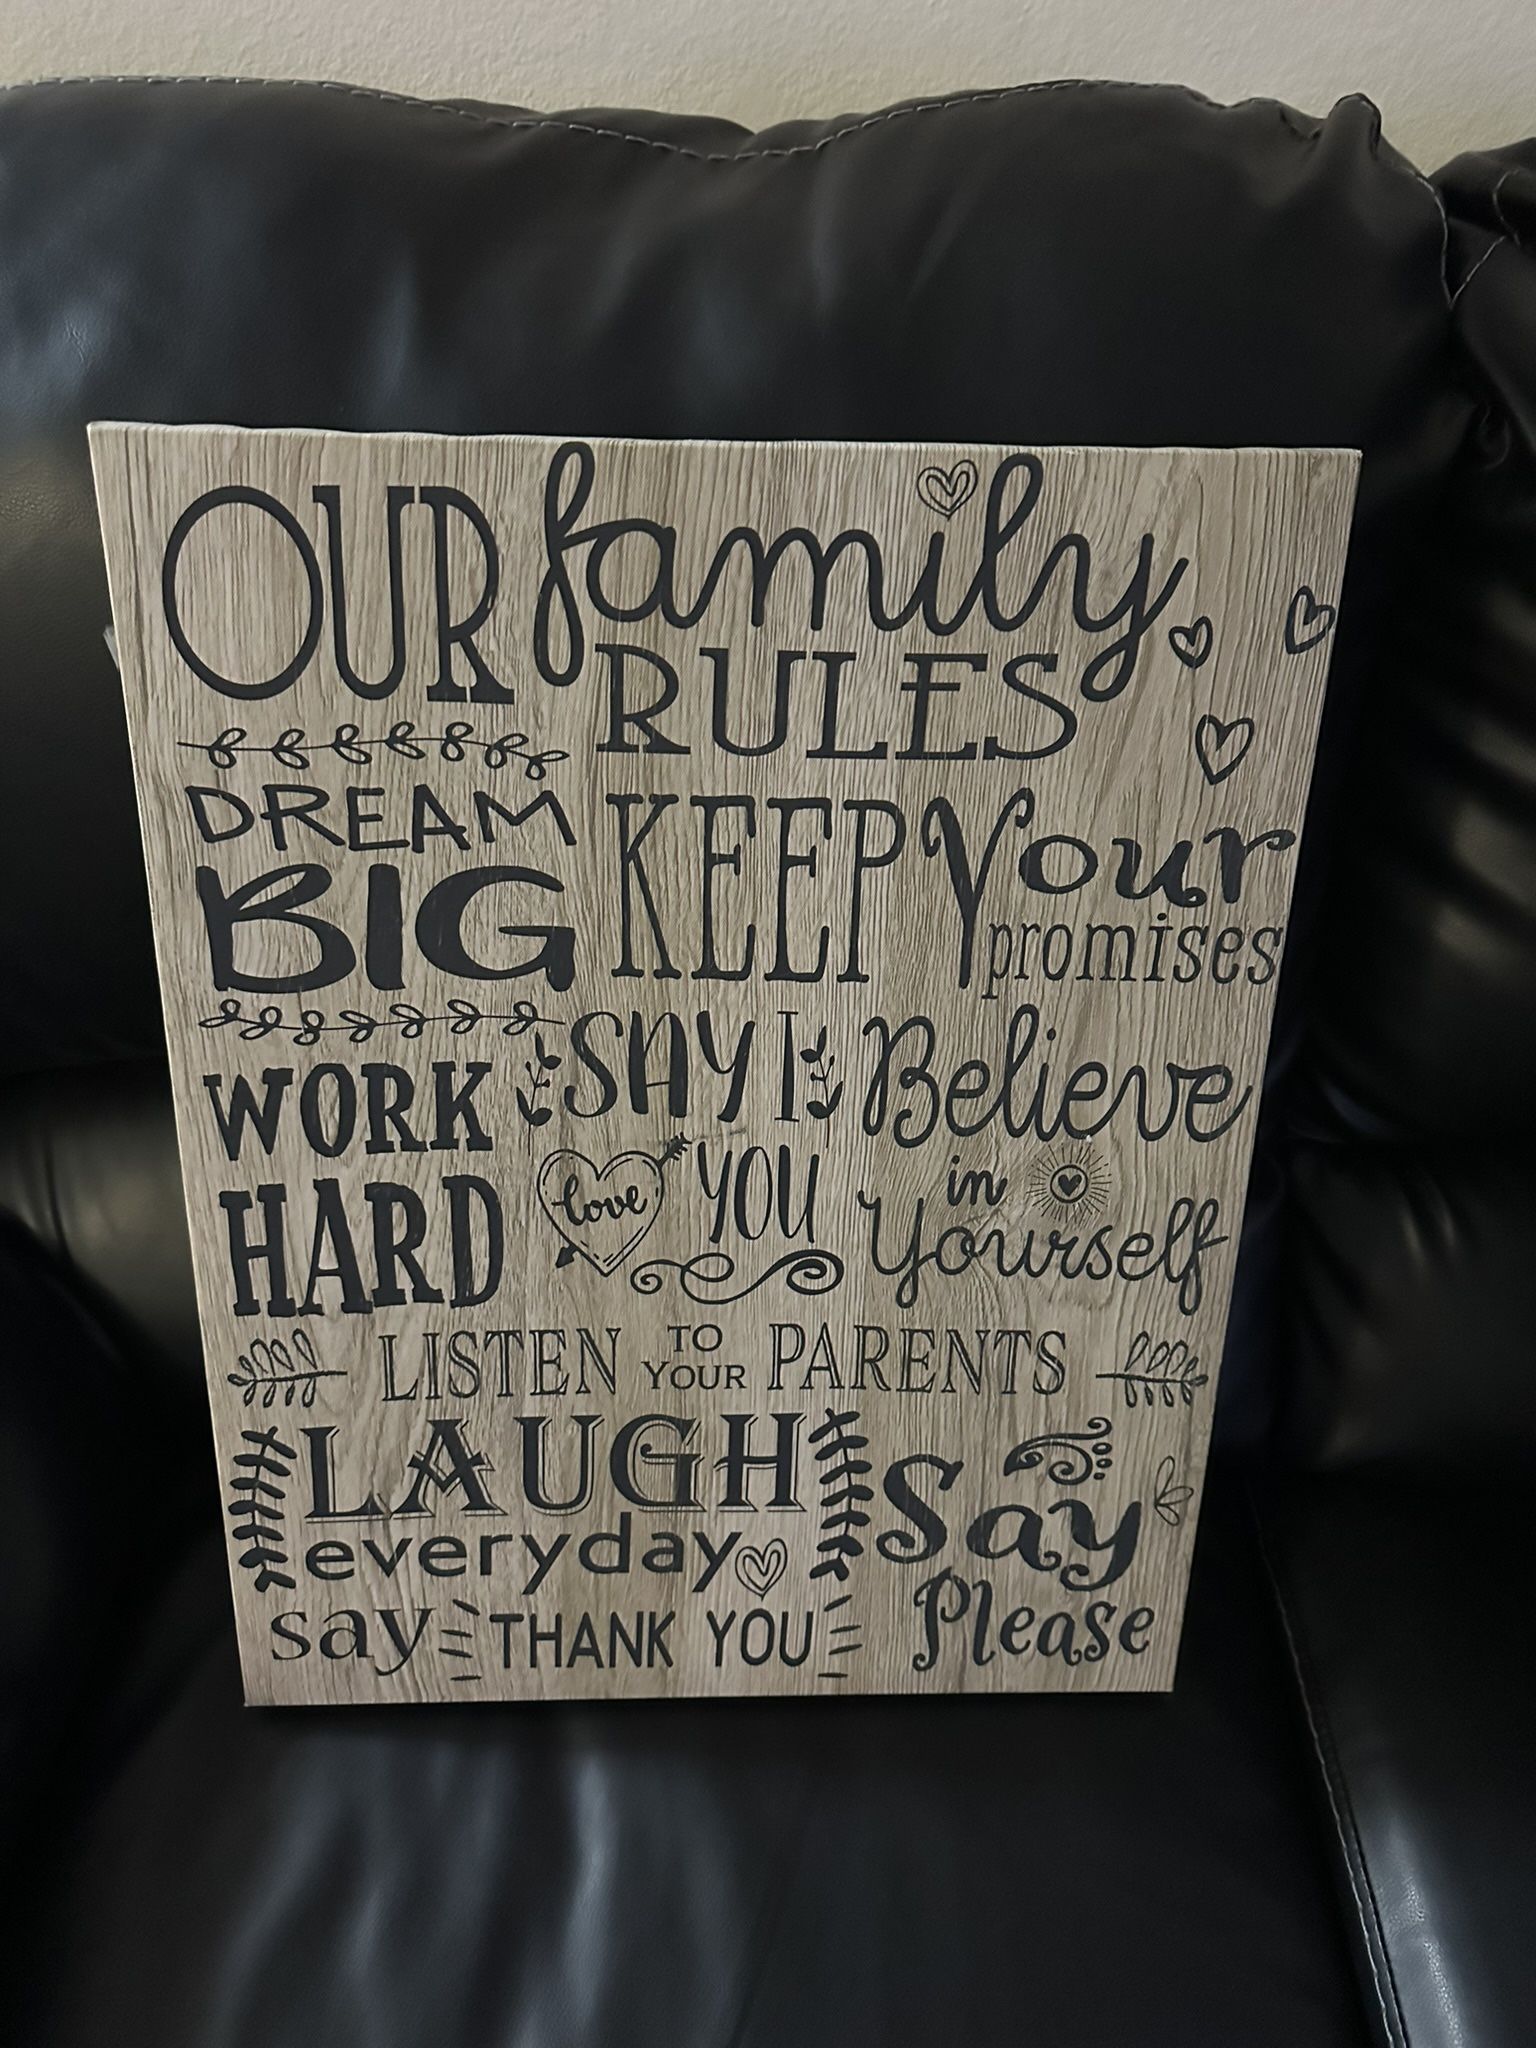 OUR family
RULES
DREAM
BIG
KEEP Your
promises
WORK
HARD
SAY I
love YOU
Believe
in
Yourself
LISTEN TO YOUR PARENTS
LAUGH
everyday
say THANK YOU
Say
Please